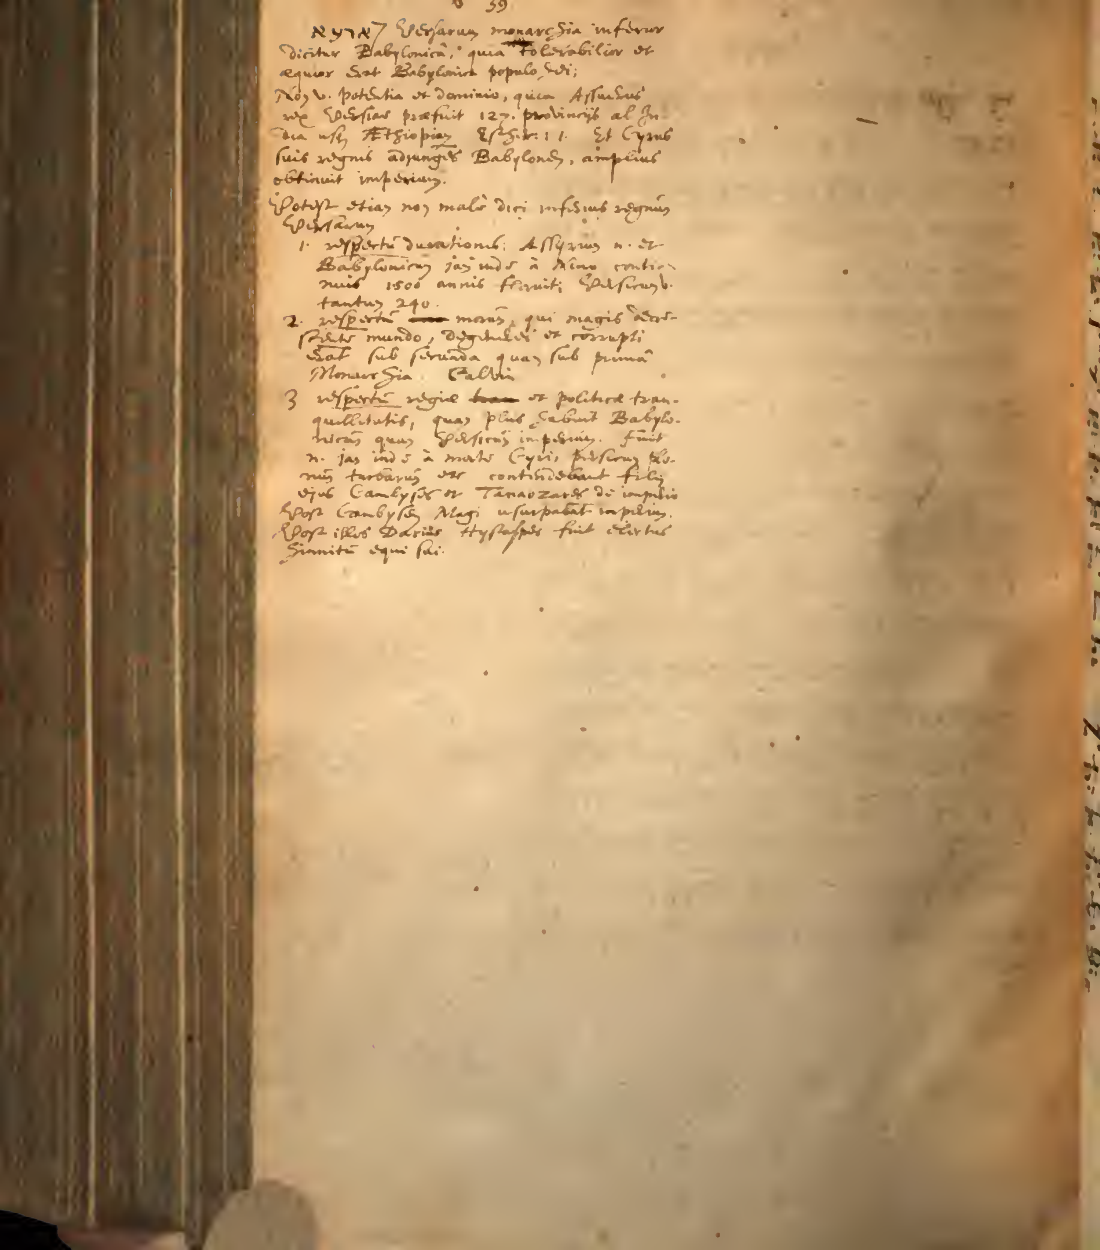 v 39
ארעא Persarum monarchia inferior
dicitur Babylonicâ, quia tolerabilior et
æquior erat Babylonica populo Dei;
Non v. potentia et dominio, quia Assuerus
rex Persiae præfuit 127. provincijs ab In-
dia usq Æthiopiam Esther: 1 1. Et Cyrus
suis regnis adjungēs Babylonem, amplius
obtinuit imperium.
Potest etiam non malè dici inferius regnum
Persarum
1. respectu durationis: Assyrium n. et
Babylonicum jam inde à Nino conti-
nuis 1500 annis floruit; Persicum v.
tantum 240.
2. respectu morum, qui magis
mundo, et corrupti
erāt sub secunda quam sub primâ
Monarchia. Calvin
3 respectu regiæ et politicæ tran-
quillitatis, quam plus habuit Babylo-
nicum quam Persicum imperium. Fuit
n. jam inde à morte Cyri Persicum ple-
num turbarum etc contendebant filij
ejus Cambyses et Tanaoxares de imperio
Post Cambysen Magi usurpabāt imperium.
Post illos Darius Hystaspes fuit electus
hinnitu equi sui.